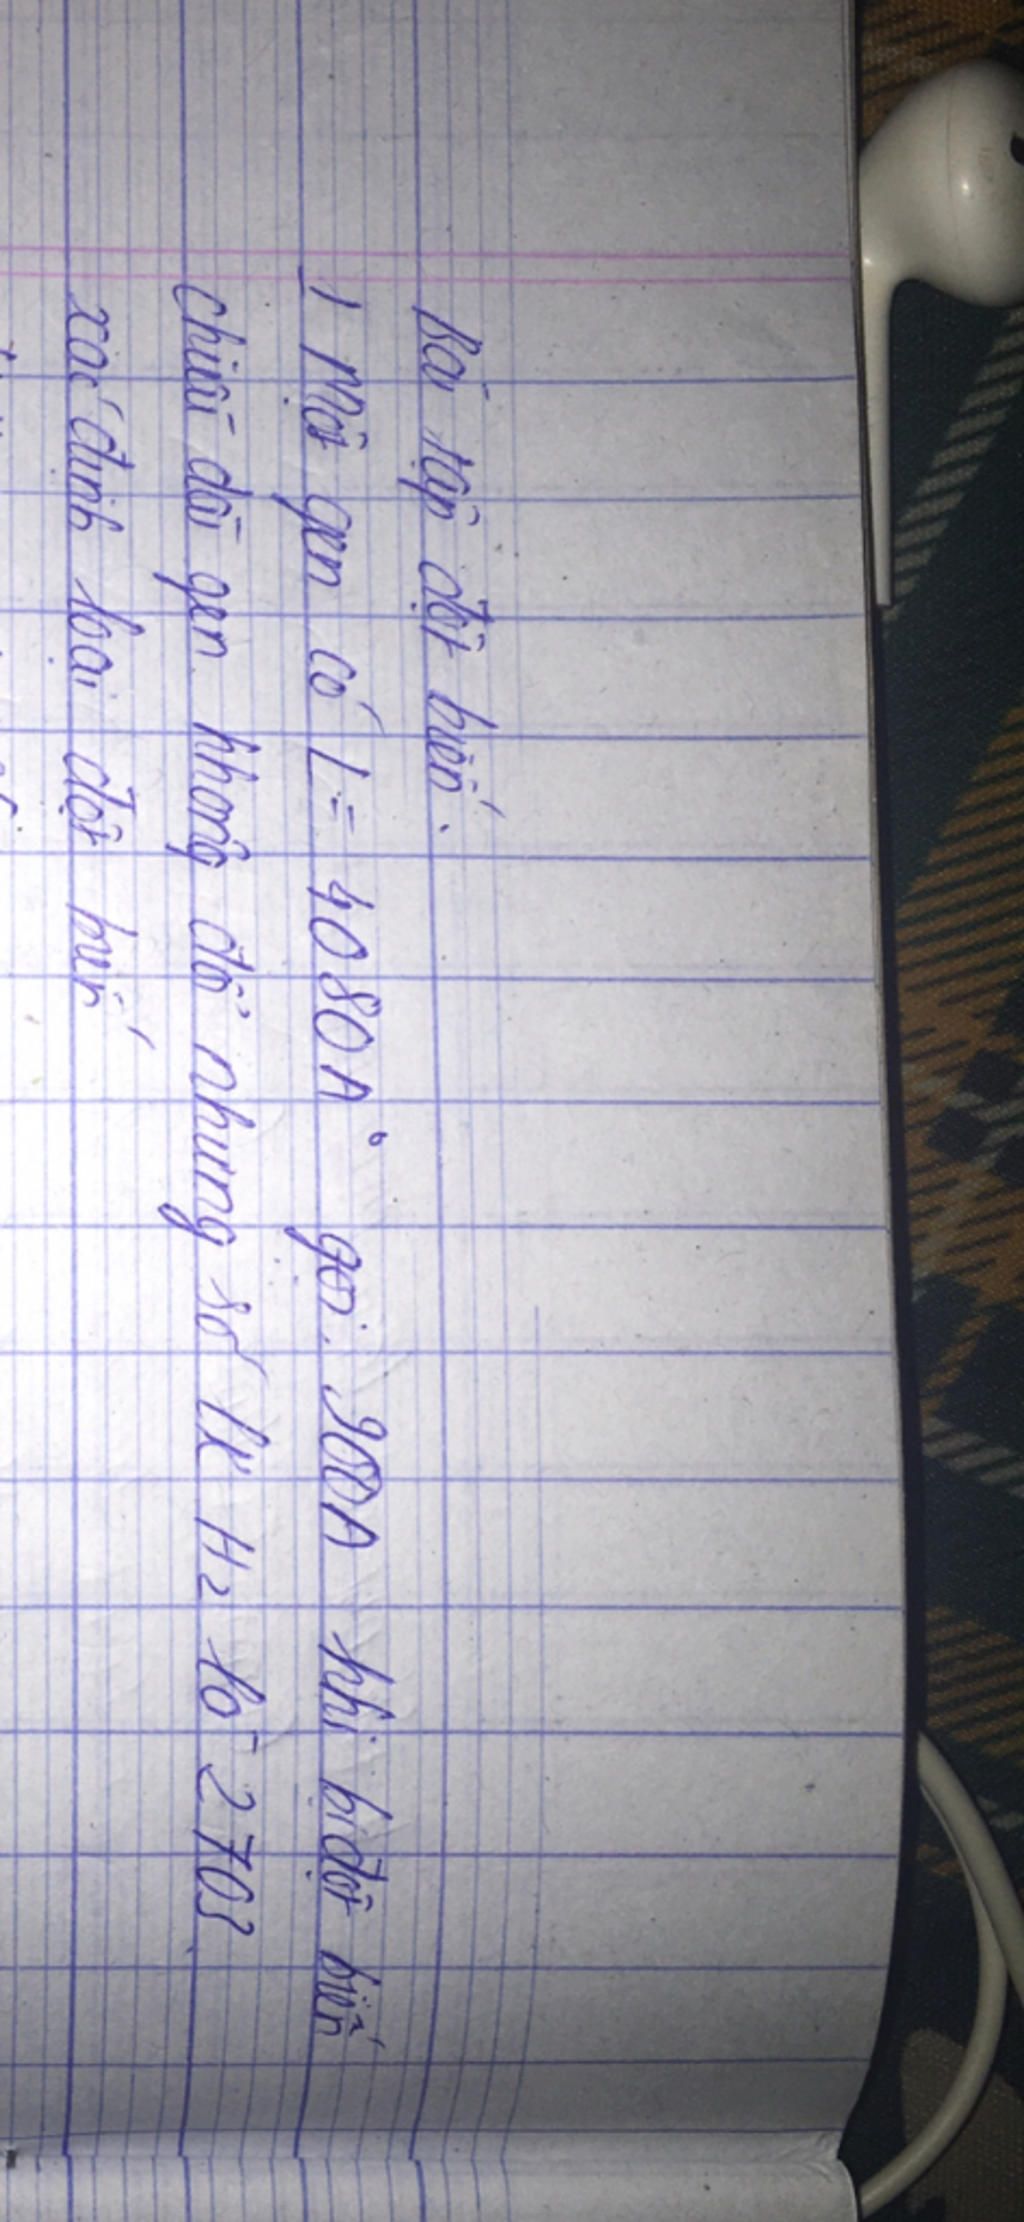 Bài tập đột biến.
1) Một gen có L = 4080A° gồi. 900A khi bị đột biến
chiều dài gen không đổi nhưng số lk H2 là 2703
xác định loại đột biến